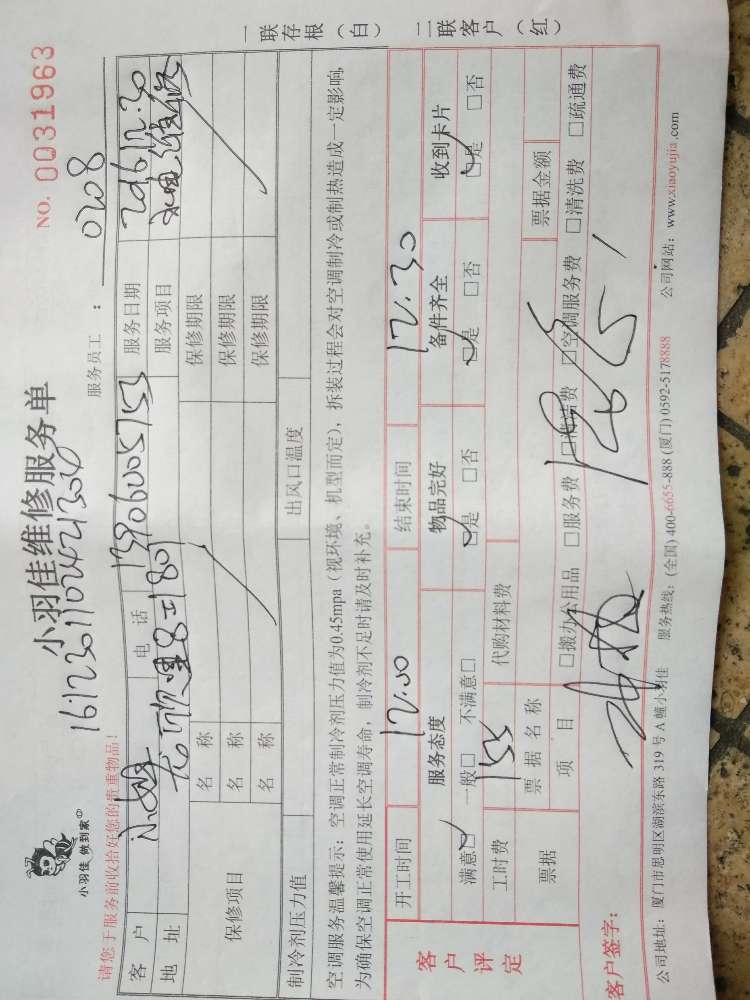 小羽佳 做到家
小羽佳维修服务单
NO. 0031963
1612301102421304
服务员工：0208
请您于服务前收拾好您的贵重物品！
客户 电话 13906005753 服务日期
地址 服务项目
保修项目 名称 保修期限
名称 保修期限
名称 保修期限
制冷剂压力值 出风口温度
空调服务温馨提示：空调正常制冷剂压力值为0.45mpa（视环境、机型而定），拆装过程会对空调制冷或制热造成一定影响，
为确保空调正常使用延长空调寿命，制冷剂不足时请及时补充。
客户评定
开工时间 12.00 结束时间 12.30
服务态度 物品完好 备件齐全 收到卡片
满意□ 一般□ 不满意□ □是 □否 □是 □否 □是 □否
工时费 155 代购材料费
票据 票据名称 票据金额
项目 □搬办公用品 □服务费 □清洁费 □空调服务费 □清洗费 □疏通费
客户签字：
公司地址：厦门市思明区湖滨东路 319 号 A 幢小羽佳 服务热线：(全国) 400-6655-888 (厦门) 0592-5178888 公司网站：www.xiaoyujia.com
一联存根（白） 二联客户（红）